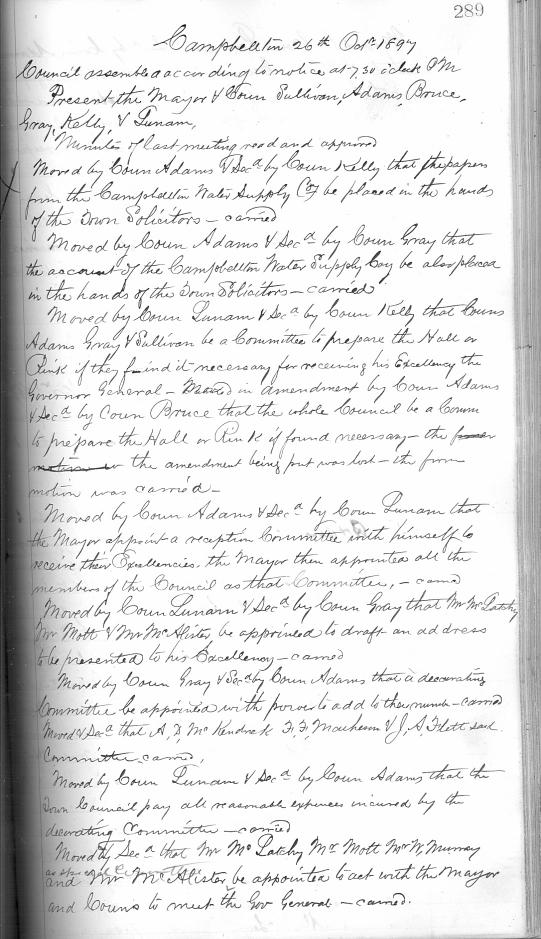 289
Campbellton 26th Octr 1897
Council assembled according to notice at 7,30 o'clock PM
Present the Mayor & Coun Sullivan, Adams, Bruce,
Gray, Kelly, & Lunam,
Minutes of last meeting read and approved
Moved by Coun Adams & Secd by Coun Kelly that the papers
from the Campbellton Water Supply Coy be placed in the hands
of the Town Solicitors – carried
Moved by Coun Adams & Secd by Coun Gray that
the account of the Campbellton Water Supply Coy be also placed
in the hands of the Town Solicitors – carried
Moved by Coun Lunam & Secd by Coun Kelly that Couns
Adams Gray & Sullivan be a Committee to prepare the Hall or
Rink if they find it necessary for receiving his Excellency the
Governor General – Moved in amendment by Coun Adams
& Secd by Coun Bruce that the whole Council be a Comm
to prepare the Hall or Rink if found necessary – the
motion the amendment being put was lost – the
motion was carried –
Moved by Coun Adams & Secd by Coun Lunam that
the Mayor appoint a reception Committee with himself to
receive their Excellencies, the Mayor then appointed all the
members of the Council as that Committee, –
Moved by Coun Lunam & Secd by Coun Gray that Mr McLatchy
Mr Mott & Mr McAlister be appointed to draft an address
to be presented to his Excellency – carried
Moved by Coun Gray & Secd by Coun Adams that a decorating
Committee be appointed with power to add to their number – carried
Moved & Secd that A, D, McKendrick F, F, Matheson & J, A Flett said
Committee – carried,
Moved by Coun Lunam & Secd by Coun Adams that the
Town Council pay all reasonable expences incured by the
decorating Committee – carried
Moved by Secd that Mr McLatchy Mr Mott Mr W. Murray
and Mr McAlister be appointed to act with the Mayor
and Couns to meet the Gov General – carried.